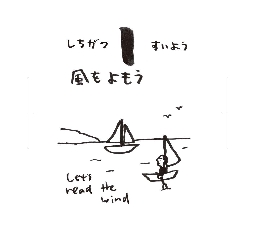 しちがつ すいよう
風をよもう
Let's
read the
wind